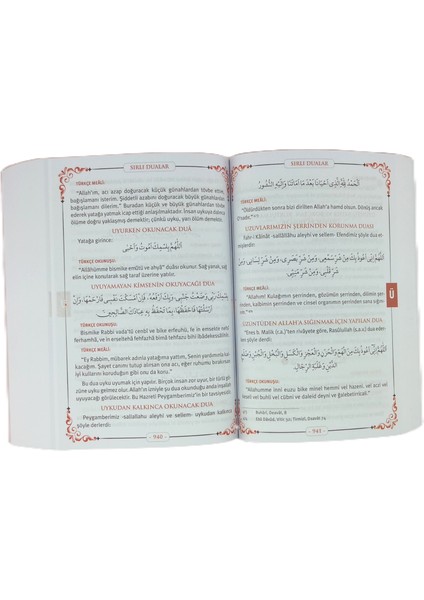 SIRLI DUALAR
TÜRKÇE MEÂLİ:
"Allah'ım, acı azap doğuracak küçük günahlardan tövbe ettim,
bağışlamanı isterim. Şiddetli azabım doğuracak büyük günahlarımı
bağışlamanı dilerim." Buradan küçük ve büyük günahlardan tövbe
ederek yatağa yatmak icap ettiği anlaşılmaktadır. İnsan uykuya dalmakla
ölüme doğru yaklaşmış demektir; çünkü uyku, yarı ölümdür.
UYURKEN OKUNACAK DUÂ
Yatağa girince:
اَللّٰهُمَّ بِاسْمِكَ اَمُوتُ وَاَحْيٰى
TÜRKÇE OKUNUŞU:
"Allâhümme bismike emûtü ve ahyâ" duâsı okunur. Sağ yanak, sağ
elin içine konularak sağ taraf üzerine yatılır.
UYUYAMAYAN KİMSENİN OKUYACAĞI DUA
بِاسْمِكَ رَبِّى وَضَعْتُ جَنْبِى، وَبِكَ اَرْفَعُهُ. فَاِنْ اَمْسَكْتَ نَفْسِى فَارْحَمْهَا، وَاِنْ
اَرْسَلْتَهَا فَاحْفَظْهَا بِمَا تَحْفَظُ بِهِ عِبَادَكَ الصَّالِحِينَ
TÜRKÇE OKUNUŞU:
Bismike Rabbî vada'tü cenbî ve bike erfeuhû, fe in emsekte nefsî
ferhamhâ, ve in erseltehâ fehfazhâ bimâ tehfazu bihî ibâdekessâlihîn.
TÜRKÇE MEÂLİ:
"Ey Rabbim, mübarek adınla yatağıma yattım, Senin yardımınla kal-
kacağım. Şayet canımı tutup alırsan ona rahmet et, eğer ruhumu
bedenimde bırakıp hayatımı devam ettirirsen, nefsimi hayırlı ve iyi
kullarını koruduğun gibi onu da koru."
Bu dua uyku uyumak için yapılır. Birçok insan zor uyur, bir türlü göz-
lerine uyku dolmaz. Allah'ın izniyle bu duayı okuduğu zaman kolayca
uyuyacağı görülecektir. Bu Hazreti Peygamberimiz'in bir tavsiyesidir.
UYKUDAN KALKINCA OKUNACAK DUA
Peygamberimiz -sallallahu aleyhi ve sellem- uykudan kalkınca
şöyle derlerdi:
940
SIRLI DUALAR
اَلْحَمْدُ لِلّٰهِ الَّذِى اَحْيَانَا بَعْدَ مَا اَمَاتَنَا وَاِلَيْهِ النُّشُورُ
TÜRKÇE MEÂLİ:
"Öldürdükten sonra bizi dirilten Allah'a hamd olsun. Dönüş ancak
O'nadır."
UZUVLARIMIZIN ŞERRİNDEN KORUNMA DUASI
Fahr-i Kâinât -sallallâhu aleyhi ve sellem- Efendimiz şöyle dua
ederdi:
اَللّٰهُمَّ اِنِّى اَعُوذُ بِكَ مِنْ شَرِّ سَمْعِى، وَمِنْ شَرِّ بَصَرِى، وَمِنْ شَرِّ لِسَانِى، وَمِنْ
شَرِّ قَلْبِى، وَمِنْ شَرِّ مَنِيِّى
TÜRKÇE MEÂLİ:
"Allahım! Kulağımın şerrinden, gözümün şerrinden, dilimin şer-
rinden, kalbimin şerrinden ve cinsel organımın şerrinden sana sığını-
rım."
Ü
ÜZÜNTÜDEN ALLAH'A SIĞINMAK İÇİN YAPILAN DUA
"Enes b. Malik (r.a.)'ten rivâyete göre, Rasûlullah (s.a.v.) şöyle dua
ederdi:
اَللّٰهُمَّ اِنِّى اَعُوذُ بِكَ مِنَ الْهَمِّ وَالْحَزَنِ وَالْعَجْزِ وَالْكَسَلِ وَالْبُخْلِ وَالْجُبْنِ وَضَلَعِ
الدَّيْنِ وَغَلَبَةِ الرِّجَالِ
TÜRKÇE OKUNUŞU:
"Allahumme inni euzu bike minel hemmi vel hazeni, vel aczi vel
kesel vel buhli vel cübni ve daleid deyni ve galebetirricali."
Buhârî, Daavât, 8
Ebû Dâvûd, Vitr 32; Tirmizî, Daavât 74
941